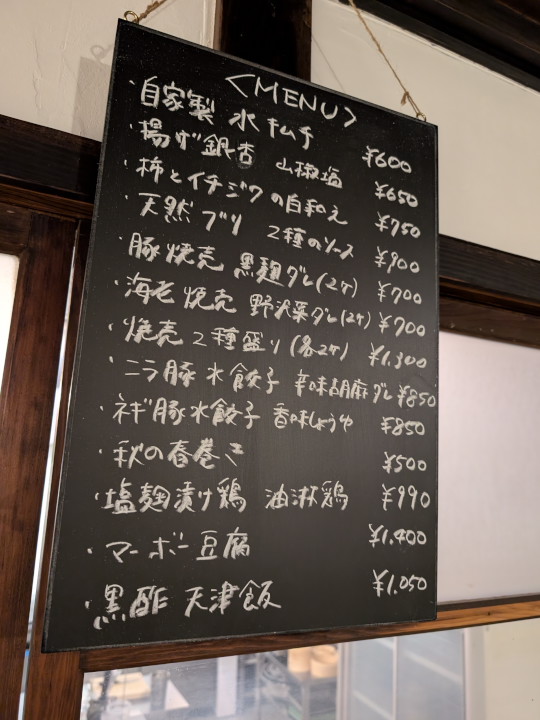 <MENU>
・自家製 水キムチ ¥600
・揚げ銀杏 山椒塩 ¥650
・柿とイチジクの白和え ¥750
・天然ブリ 2種のソース ¥900
・豚焼売 黒麹ダレ(2ヶ) ¥700
・海老焼売 野沢菜ダレ(2ヶ) ¥700
・焼売2種盛り(各2ヶ) ¥1,300
・ニラ豚水餃子 辛味胡麻ダレ ¥850
・ネギ豚水餃子 香味しょうゆ ¥850
・秋の春巻き ¥500
・塩麹漬け鶏 油淋鶏 ¥990
・マーボー豆腐 ¥1,400
・黒酢 天津飯 ¥1,050